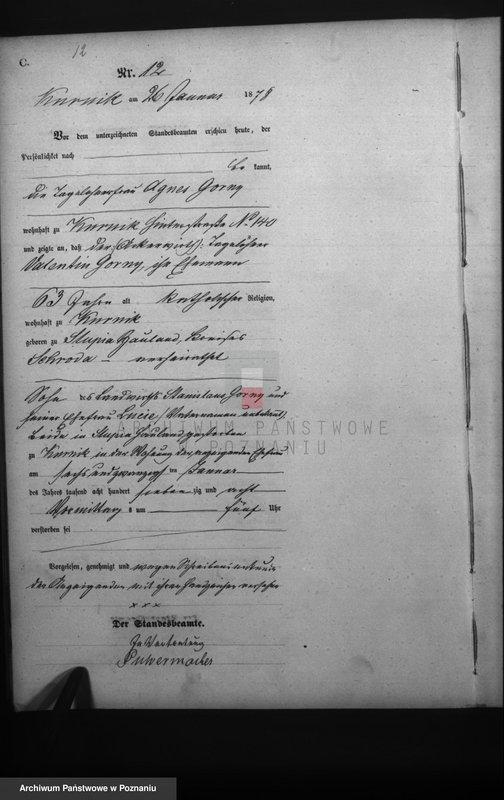 C.
12
Nr. 12
Kurnik am 26 Januar 1878
Vor dem unterzeichneten Standesbeamten erschien heute, der
Persönlichkeit nach
be kannt,
die Tagelöhnerfrau Agnes Gorny
wohnhaft zu Kurnik Hinterstraße No 140
und zeigte an, daß der (Ackerwirth), Tagelöhner
Valentin Gorny, ihr Ehemann
63 Jahre alt katholischer Religion,
wohnhaft zu Kurnik
geboren zu Slupia Hauland, Kreises
Schroda verheirathet
Sohn des Landwirths Stanislaus Gorny und
seiner Ehefrau Lucie (Vatername unbekannt)
beide in Slupia Hauland gestorben
zu Kurnik in der Wohnung der anzeigenden Ehefrau
am sechs und zwanzigsten Januar
des Jahres tausend acht hundert sieben zig und acht
Vormittag s um fünf Uhr
verstorben sei
Vorgelesen, genehmigt und wegen Schreibensunkunde
der Anzeigenden mit ihren Handzeichen versehen
x x x
Der Standesbeamte.
In Vertretung
Pulvermacher
ARCHIWUM PAŃSTWOWE
W POZNANIU
Archiwum Państwowe w Poznaniu